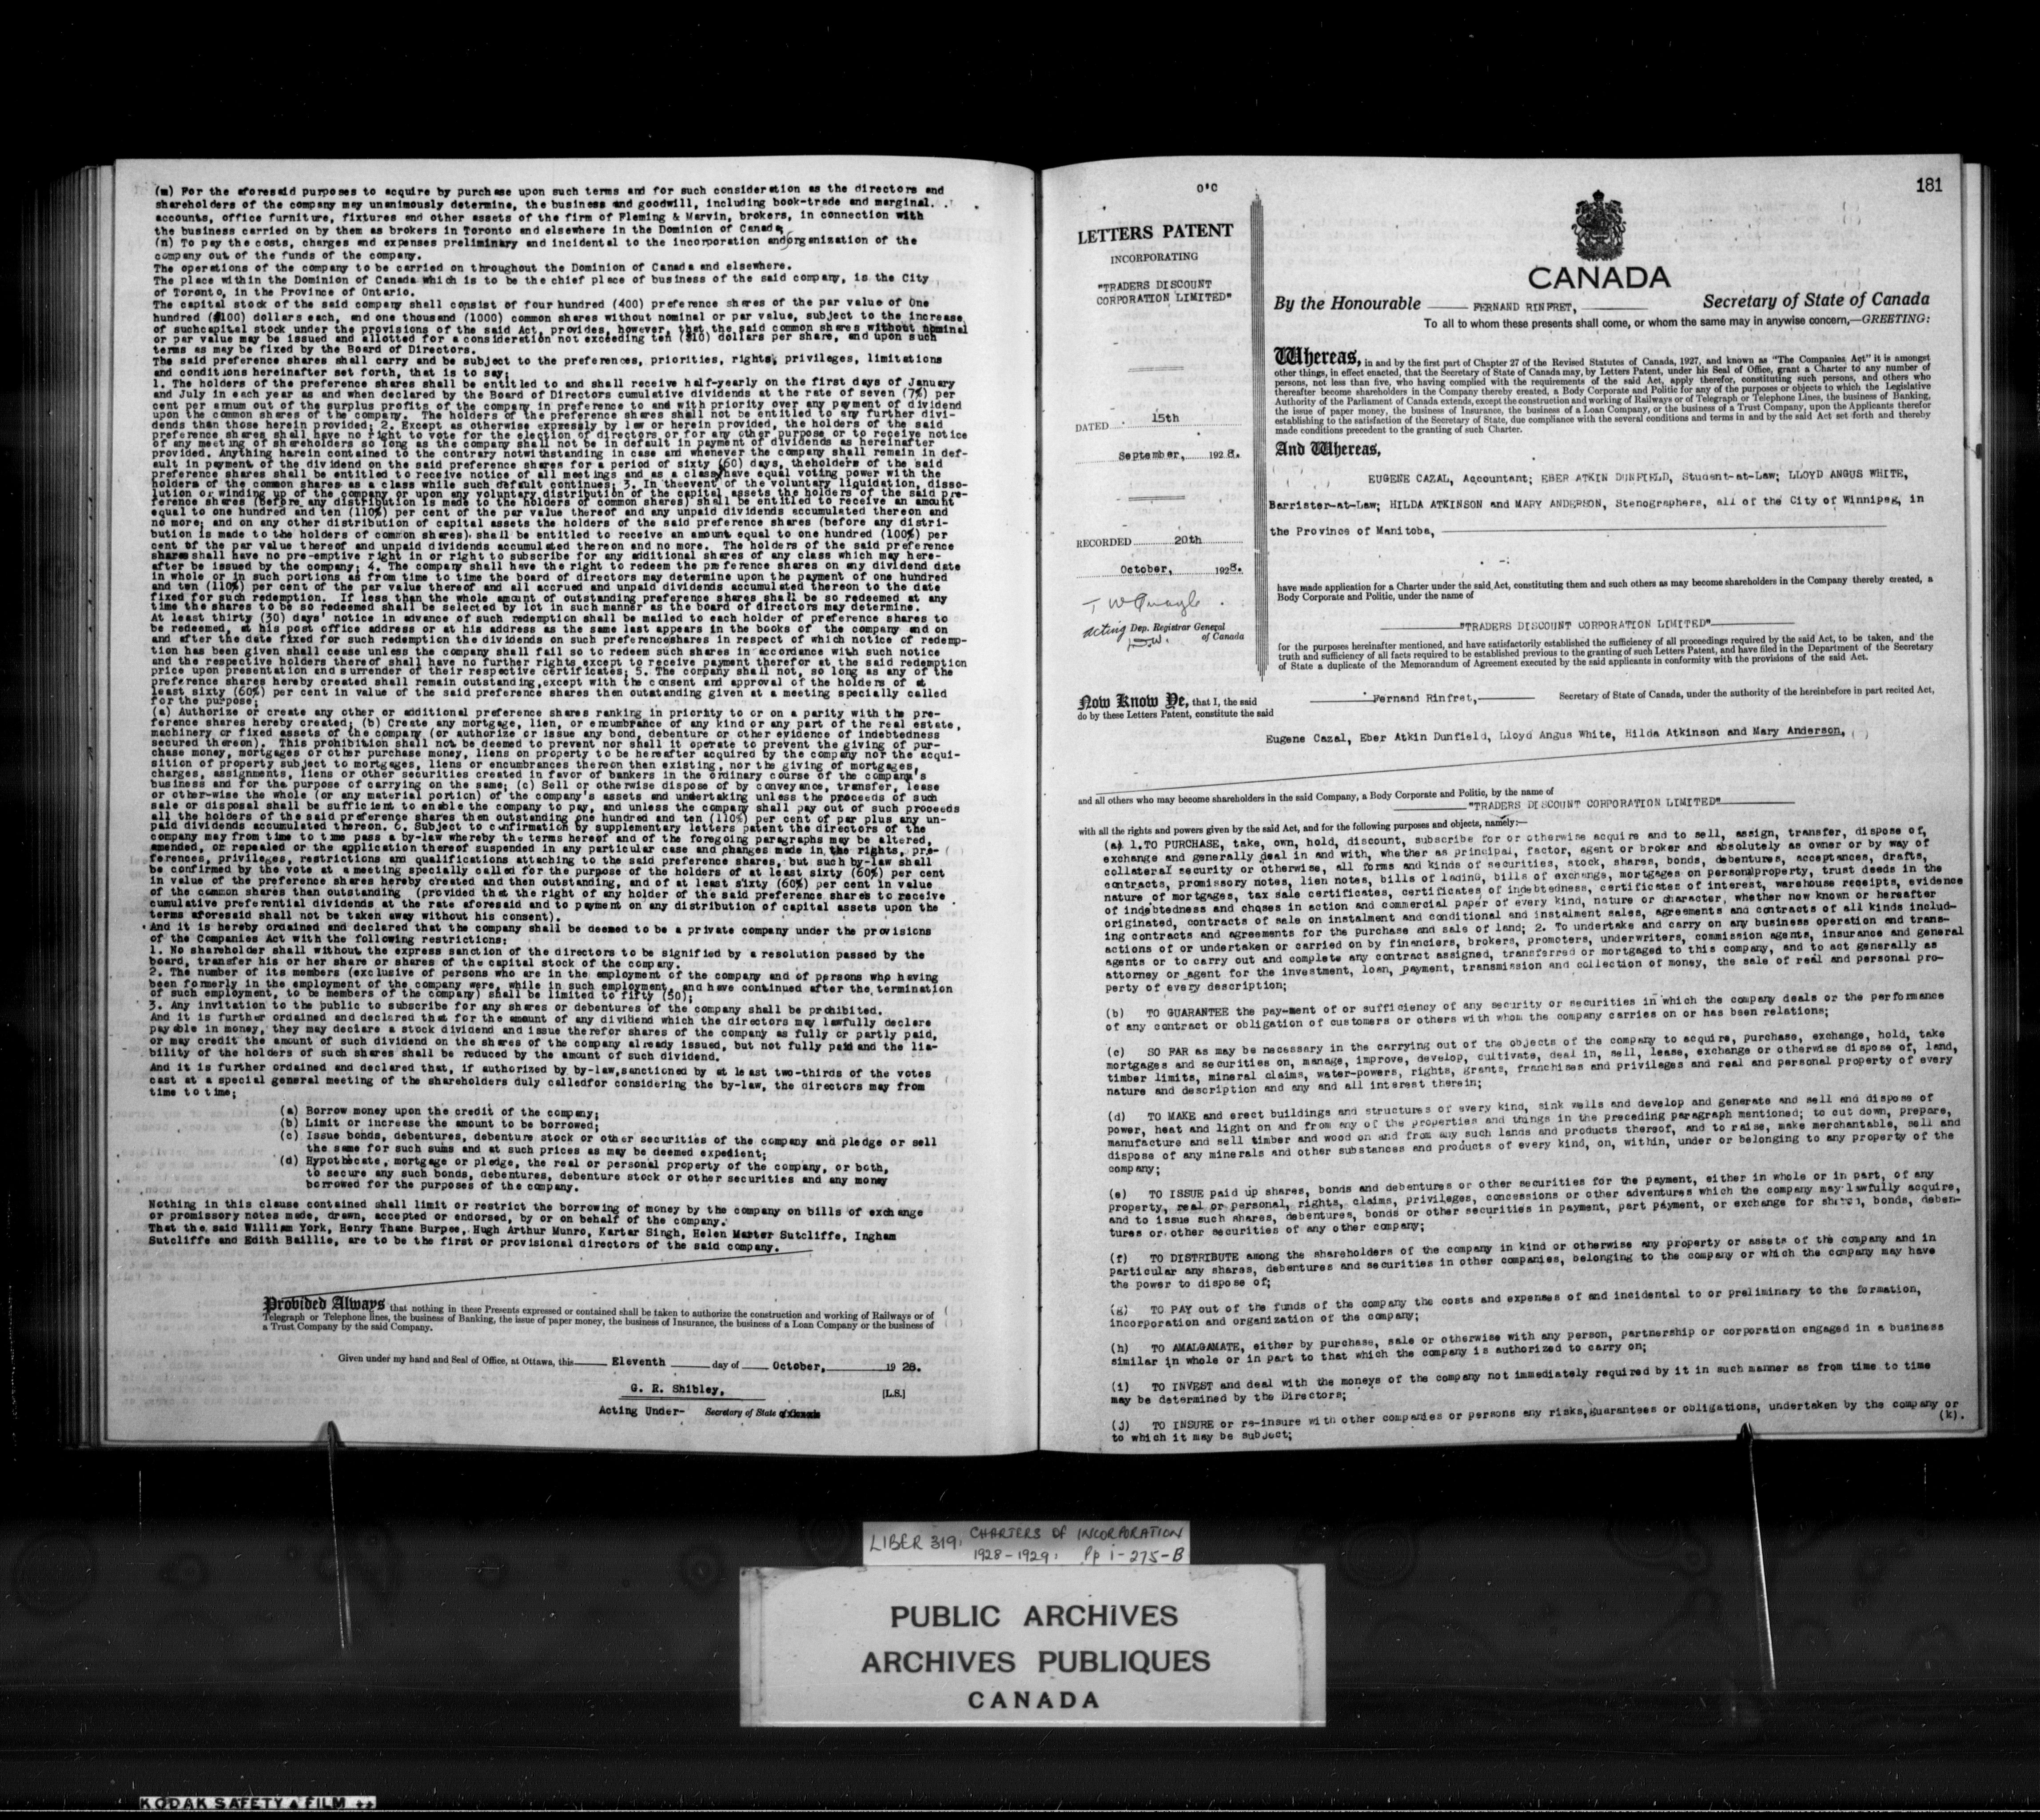 (m) For the aforesaid purposes to acquire by purchase upon such terms and for such consideration as the directors and
shareholders of the company may unanimously determine, the business and goodwill, including book-trade and marginal.
accounts, office furniture, fixtures and other assets of the firm of Fleming & Marvin, brokers, in connection with
the business carried on by them as brokers in Toronto and elsewhere in the Dominion of Canada;
(n) To pay the costs, charges and expenses preliminary and incidental to the incorporation and organization of the
company out of the funds of the company.
The operations of the company to be carried on throughout the Dominion of Canada and elsewhere.
The place within the Dominion of Canada which is to be the chief place of business of the said company, is the City
of Toronto, in the Province of Ontario.
The capital stock of the said company shall consist of four hundred (400) preference shares of the par value of One
hundred ($100) dollars each, and one thousand (1000) common shares without nominal or par value, subject to the increase
of suchcapital stock under the provisions of the said Act, provides, however, that the said common shares without nominal
or par value may be issued and allotted for a consideration not exceeding ten ($10) dollars per share, and upon such
terms as may be fixed by the Board of Directors.
The said preference shares shall carry and be subject to the preferences, priorities, rights, privileges, limitations
and conditions hereinafter set forth, that is to say;
1. The holders of the preference shares shall be entitled to and shall receive half-yearly on the first days of January
and July in each year as and when declared by the Board of Directors cumulative dividends at the rate of seven (7%) per
cent per annum out of the surplus profits of the company in preference to and with priority over any payment of dividend
upon the common shares of the company. The holders of the preference shares shall not be entitled to any further divi-
dends than those herein provided; 2. Except as otherwise expressly by law or herein provided, the holders of the said
preference shares shall have no right to vote for the election of directors or for any other purpose or to receive notice
of any meeting of shareholders so long as the company shall not be in default in payment of dividends as hereinafter
provided. Anything herein contained to the contrary notwithstanding in case and whenever the company shall remain in def-
ault in payment of the dividend on the said preference shares for a period of sixty (60) days, theholders of the said
preference shall be entitled to receive notice of all meetings and as a class have equal voting power with the
holders of the common shares as a class while such default continues; 3. In theevent of the voluntary liquidation, disso-
lution or winding up of the company or upon any voluntary distribution of the capital assets the holders of the said pre-
ference shares (before any distribution is made to the holders of common shares) shall be entitled to receive an amount
equal to one hundred and ten (110%) per cent of the par value thereof and any unpaid dividends accumulated thereon and
no more; and on any other distribution of capital assets the holders of the said preference shares (before any distri-
bution is made to the holders of common shares) shall be entitled to receive an amount equal to one hundred (100%) per
cent of the par value thereof and unpaid dividends accumulated thereon and no more. The holders of the said preference
shares shall have no pre-emptive right in or right to subscribe for any additional shares of any class which may here-
after be issued by the company; 4. The company shall have the right to redeem the preference shares on any dividend date
in whole or in such portions as from time to time the board of directors may determine upon the payment of one hundred
and ten (110%) per cent of the par value thereof and all accrued and unpaid dividends accumulated thereon to the date
fixed for such redemption. If less than the whole amount of outstanding preference shares shall be so redeemed at any
time the shares to be so redeemed shall be selected by lot in such manner as the board of directors may determine.
At least thirty (30) days' notice in advance of such redemption shall be mailed to each holder of preference shares to
be redeemed, at his post office address or at his address as the same last appears in the books of the company and on
and after the date fixed for such redemption the dividends on such preferenceshares in respect of which notice of redemp-
tion has been given shall cease unless the company shall fail so to redeem such shares in accordance with such notice
and the respective holders thereof shall have no further rights except to receive payment therefor at the said redemption
price upon presentation and surrender of their respective certificates; 5. The company shall not, so long as any of the
preference shares hereby created shall remain outstanding,except with the consent and approval of the holders of at
least sixty (60%) per cent in value of the said preference shares then outatanding given at a meeting specially called
for the purpose;
(a) Authorize or create any other or additional preference shares ranking in priority to or on a parity with the pre-
ference shares hereby created; (b) Create any mortgage, lien, or encumbrance of any kind or any part of the real estate,
machinery or fixed assets of the company (or authorize or issue any bond, debenture or other evidence of indebtedness
secured thereon). This prohibition shall not be deemed to prevent nor shall it operate to prevent the giving of pur-
chase money, mortgages or other purchase money, liens on property to be hereafter acquired by the company nor the acqui-
sition of property subject to mortgages, liens or encumbrances thereon then existing, nor the giving of mortgages,
charges, assignments, liens or other securities created in favor of bankers in the ordinary course of the company's
business and for the purpose of carrying on the same; (c) Sell or otherwise dispose of by conveyance, transfer, lease
or other-wise the whole (or any material portion) of the company's assets and undertaking unless the proceeds of such
sale or disposal shall be sufficient to enable the company to pay, and unless the company shall pay out of such proceeds
all the holders of the said preference shares then outstanding one hundred and ten (110%) per cent of par plus any un-
paid dividends accumulated thereon. 6. Subject to confirmation by supplementary letters patent the directors of the
company may from time to time pass a by-law whereby the terms hereof and of the foregoing paragraphs may be altered,
amended, or repealed or the application thereof suspended in any particular case and changes made in the rights, pre-
ferences, privileges, restrictions and qualifications attaching to the said preference shares, but such by-law shall
be confirmed by the vote at a meeting specially called for the purpose of the holders of at least sixty (60%) per cent
in value of the preference shares hereby created and then outstanding, and of at least sixty (60%) per cent in value
of the common shares than outstanding (provided that the right of any holder of the said preference shares to receive
cumulative preferential dividends at the rate aforesaid and to payment on any distribution of capital assets upon the
terms aforesaid shall not be taken away without his consent).
And it is hereby ordained and declared that the company shall be deemed to be a private company under the provisions
of the Companies Act with the following restrictions:
1. No shareholder shall without the express sanction of the directors to be signified by a resolution passed by the
board, transfer his or her share or shares of the capital stock of the company.
2. The number of its members (exclusive of persons who are in the employment of the company and of persons who having
been formerly in the employment of the company were, while in such employment, and have continued after the termination
of such employment, to be members of the company) shall be limited to fifty (50);
3. Any invitation to the public to subscribe for any shares or debentures of the company shall be prohibited.
And it is further ordained and declared that for the amount of any dividend which the directors may lawfully declare
payable in money, they may declare a stock dividend and issue therefor shares of the company as fully or partly paid,
or may credit the amount of such dividend on the shares of the company already issued, but not fully paid and the lia-
bility of the holders of such shares shall be reduced by the amount of such dividend.
And it is further ordained and declared that, if authorized by by-law,sanctioned by at least two-thirds of the votes
cast at a special general meeting of the shareholders duly calledfor considering the by-law, the directors may from
time to time;
(a) Borrow money upon the credit of the company;
(b) Limit or increase the amount to be borrowed;
(c) Issue bonds, debentures, debenture stock or other securities of the company and pledge or sell
the same for such sums and at such prices as may be deemed expedient;
(d) Hypothecate, mortgage or pledge, the real or personal property of the company, or both,
to secure any such bonds, debentures, debenture stock or other securities and any money
borrowed for the purposes of the company.
Nothing in this clause contained shall limit or restrict the borrowing of money by the company on bills of exchange
or promissory notes made, drawn, accepted or endorsed, by or on behalf of the company.
That the said William York, Henry Thane Burpee, Hugh Arthur Munro, Kartar Singh, Helen Marter Sutcliffe, Ingham
Sutcliffe and Edith Baillie, are to be the first or provisional directors of the said company.
Provided Always that nothing in these Presents expressed or contained shall be taken to authorize the construction and working of Railways or of
Telegraph or Telephone lines, the business of Banking, the issue of paper money, the business of Insurance, the business of a Loan Company or the business of
a Trust Company by the said Company.
Given under my hand and Seal of Office, at Ottawa, this Eleventh day of October, 1928.
G. R. Shibley, [L.S.]
Acting Under- Secretary of State
O'C
181
LETTERS PATENT
INCORPORATING
"TRADERS DISCOUNT
CORPORATION LIMITED"
DATED 15th
September, 1928.
RECORDED 20th
October, 1928.
acting Dep. Registrar General
of Canada
CANADA
By the Honourable FERNAND RINFRET, Secretary of State of Canada
To all to whom these presents shall come, or whom the same may in anywise concern,—GREETING:
Whereas, in and by the first part of Chapter 27 of the Revised Statutes of Canada, 1927, and known as "The Companies Act" it is amongst
other things, in effect enacted, that the Secretary of State of Canada may, by Letters Patent, under his Seal of Office, grant a Charter to any number of
persons, not less than five, who having complied with the requirements of the said Act, apply therefor, constituting such persons, and others who
thereafter become shareholders in the Company thereby created, a Body Corporate and Politic for any of the purposes or objects to which the Legislative
Authority of the Parliament of Canada extends, except the construction and working of Railways or of Telegraph or Telephone Lines, the business of Banking,
the issue of paper money, the business of Insurance, the business of a Loan Company, or the business of a Trust Company, upon the Applicants therefor
establishing to the satisfaction of the Secretary of State, due compliance with the several conditions and terms in and by the said Act set forth and thereby
made conditions precedent to the granting of such Charter.
And Whereas,
EUGENE CAZAL, Accountant; EBER ATKIN DUNFIELD, Student-at-Law; LLOYD ANGUS WHITE,
Barrister-at-Law; HILDA ATKINSON and MARY ANDERSON, Stenographers, all of the City of Winnipeg, in
the Province of Manitoba,
have made application for a Charter under the said Act, constituting them and such others as may become shareholders in the Company thereby created, a
Body Corporate and Politic, under the name of
"TRADERS DISCOUNT CORPORATION LIMITED"
for the purposes hereinafter mentioned, and have satisfactorily established the sufficiency of all proceedings required by the said Act, to be taken, and the
truth and sufficiency of all facts required to be established previous to the granting of such Letters Patent, and have filed in the Department of the Secretary
of State a duplicate of the Memorandum of Agreement executed by the said applicants in conformity with the provisions of the said Act.
Now Know Ye, that I, the said Fernand Rinfret, Secretary of State of Canada, under the authority of the hereinbefore in part recited Act,
do by these Letters Patent, constitute the said
Eugene Cazal, Eber Atkin Dunfield, Lloyd Angus White, Hilda Atkinson and Mary Anderson,
and all others who may become shareholders in the said Company, a Body Corporate and Politic, by the name of
"TRADERS DISCOUNT CORPORATION LIMITED"
with all the rights and powers given by the said Act, and for the following purposes and objects, namely:—
(a) 1.TO PURCHASE, take, own, hold, discount, subscribe for or otherwise acquire and to sell, assign, transfer, dispose of,
exchange and generally deal in and with, whether as principal, factor, agent or broker and absolutely as owner or by way of
collateral security or otherwise, all forms and kinds of securities, stock, shares, bonds, debentures, acceptances, drafts,
contracts, promissory notes, lien notes, bills of lading, bills of exchange, mortgages on personalproperty, trust deeds in the
nature of mortgages, tax sale certificates, certificates of indebtedness, certificates of interest, warehouse receipts, evidence
of indebtedness and choses in action and commercial paper of every kind, nature or character, whether now known or hereafter
originated, contracts of sale on instalment and conditional and instalment sales, agreements and contracts of all kinds includ-
ing contracts and agreements for the purchase and sale of land; 2. To undertake and carry on any business operation and trans-
actions of or undertaken or carried on by financiers, brokers, promoters, underwriters, commission agents, insurance and general
agents or to carry out and complete any contract assigned, transferred or mortgaged to this company, and to act generally as
attorney or agent for the investment, loan, payment, transmission and collection of money, the sale of real and personal pro-
perty of every description;
(b) TO GUARANTEE the pay-ment of or sufficiency of any security or securities in which the company deals or the performance
of any contract or obligation of customers or others with whom the company carries on or has been relations;
(c) SO FAR as may be necessary in the carrying out of the objects of the company to acquire, purchase, exchange, hold, take
mortgages and securities on, manage, improve, develop, cultivate, deal in, sell, lease, exchange or otherwise dispose of, land,
timber limits, mineral claims, water-powers, rights, grants, franchises and privileges and real and personal property of every
nature and description and any and all interest therein;
(d) TO MAKE and erect buildings and structures of every kind, sink wells and develop and generate and sell and dispose of
power, heat and light on and from any of the properties and things in the preceding paragraph mentioned; to cut down, prepare,
manufacture and sell timber and wood on and from any such lands and products thereof, and to raise, make merchantable, sell and
dispose of any minerals and other substances and products of every kind, on, within, under or belonging to any property of the
company;
(e) TO ISSUE paid up shares, bonds and debentures or other securities for the payment, either in whole or in part, of any
property, real or personal, rights, claims, privileges, concessions or other adventures which the company may lawfully acquire,
and to issue such shares, debentures, bonds or other securities in payment, part payment, or exchange for shares, bonds, deben-
tures or other securities of any other company;
(f) TO DISTRIBUTE among the shareholders of the company in kind or otherwise any property or assets of the company and in
particular any shares, debentures and securities in other companies, belonging to the company or which the company may have
the power to dispose of;
(g) TO PAY out of the funds of the company the costs and expenses of and incidental to or preliminary to the formation,
incorporation and organization of the company;
(h) TO AMALGAMATE, either by purchase, sale or otherwise with any person, partnership or corporation engaged in a business
similar in whole or in part to that which the company is authorized to carry on;
(i) TO INVEST and deal with the moneys of the company not immediately required by it in such manner as from time to time
may be determined by the Directors;
(j) TO INSURE or re-insure with other companies or persons any risks,guarantees or obligations, undertaken by the company or
to which it may be subject;
(k).
LIBER 319: CHARTERS OF INCORPORATION
1928-1929: Pp i-275-B
PUBLIC ARCHIVES
ARCHIVES PUBLIQUES
CANADA
KODAK SAFETY FILM